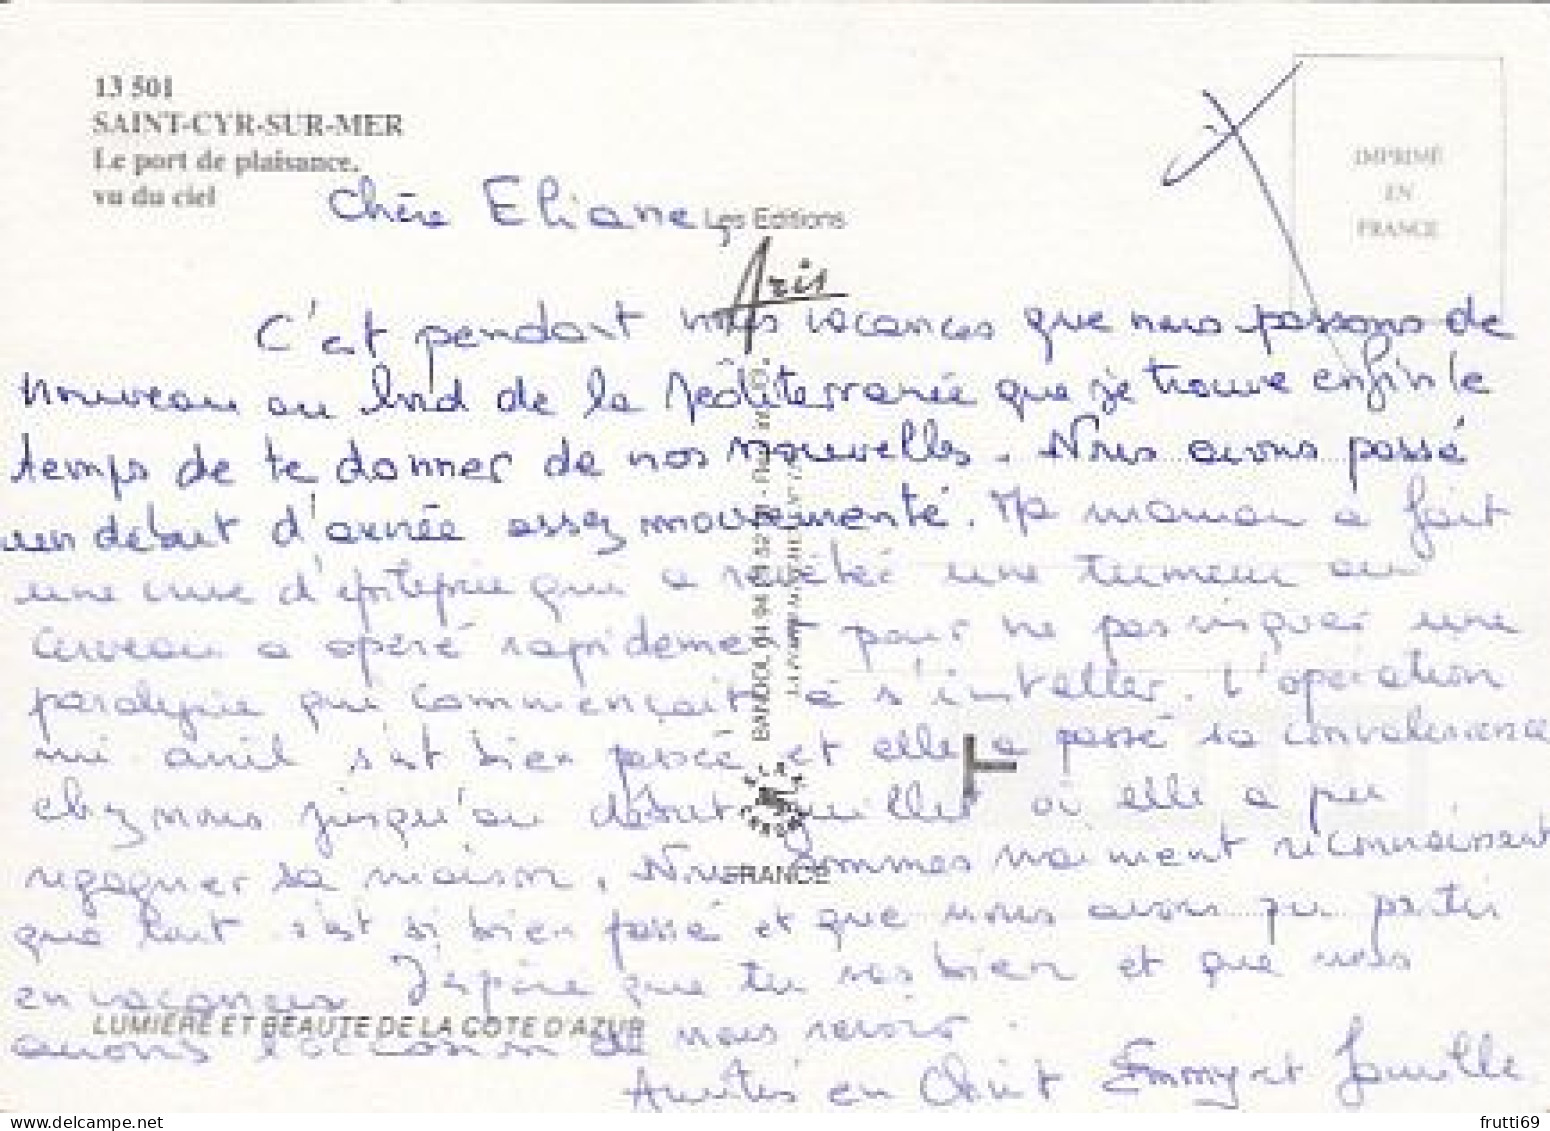 13 501
SAINT-CYR-SUR-MER
Le port de plaisance,
vu du ciel
IMPRIMÉ
EN
FRANCE
Les Editions
Aris
Chère Eliane,
C'est pendant nos vacances que nous passons de
nouveau au bord de la Méditerranée que je trouve enfin le
temps de te donner de nos nouvelles. Nous avons passé
un début d'année assez mouvementé. Ma maman a fait
une crise d'épilepsie qui a révélé une tumeur au
cerveau a opéré rapidement pour ne pas risquer une
paralysie qui commençait à s'installer. L'opération
mi avril s'est bien passée et elle a passé sa convalescence
chez nous jusqu'au début juillet où elle a pu
regagner sa maison. Nous sommes vraiment reconnaissant
que tout s'est si bien passé et que nous avons pu partir
en vacances. J'espère que tu vas bien et que nous
aurons l'occasion de nous revoir.
Amitiés en Christ Emmy et famille
BANDOL
FRANCE
LUMIÈRE ET BEAUTÉ DE LA CÔTE D'AZUR
frutti69